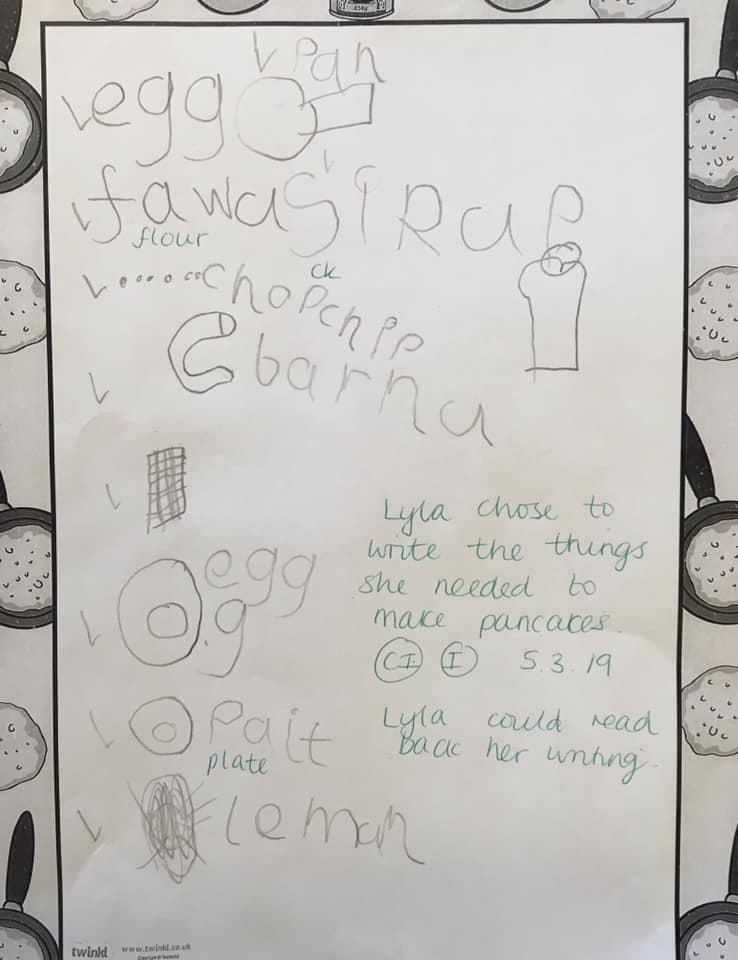 Pan
egg
fawa SIRap
flour
ck
chopchipp
barna
egg
g
Pait
plate
leman
Lyla chose to
write the things
she needed to
make pancakes.
CI I 5.3.19
Lyla could read
back her writing.
twinkl www.twinkl.co.uk